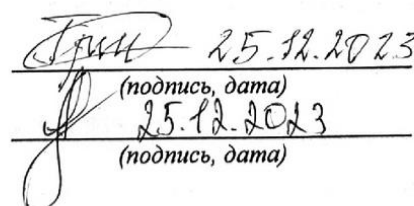 25.12.2023
(подпись, дата)
25.12.2023
(подпись, дата)